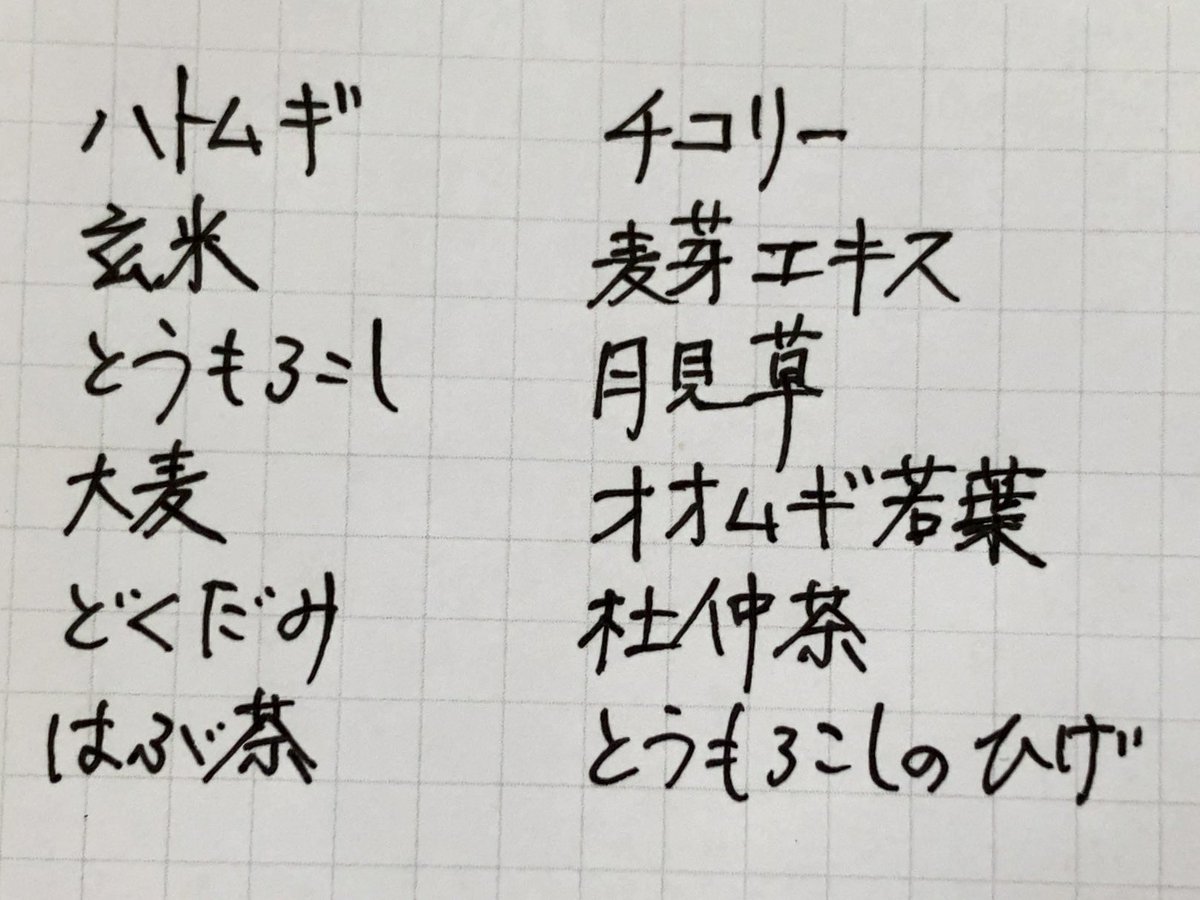 ハトムギ
玄米
とうもろこし
大麦
どくだみ
はぶ茶
チコリー
麦芽エキス
月見草
オオムギ若葉
杜仲茶
とうもろこしのひげ